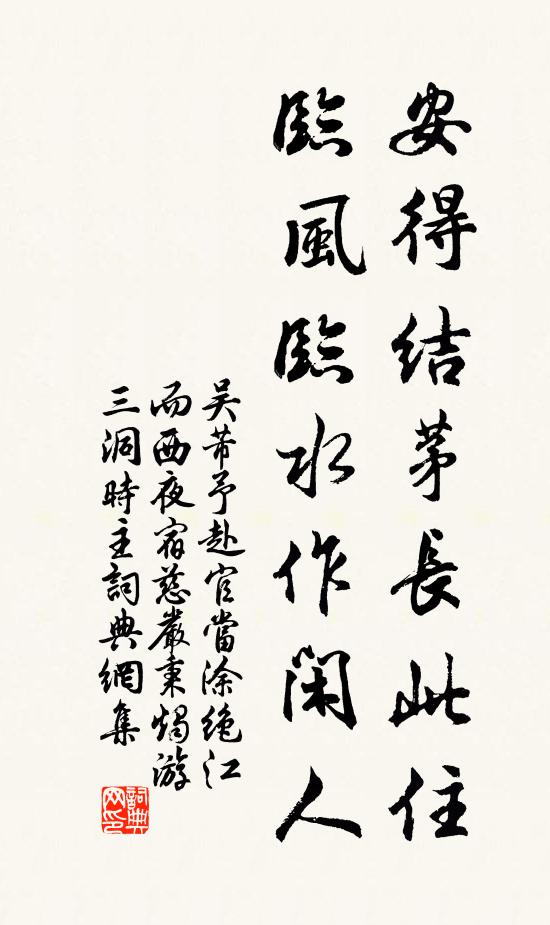 安得結茅長此住
臨風臨水作閑人
吴芾予赴官當涂絶江
而西夜宿慈嚴秉燭游
三洞時主詞典網集
詞典网印